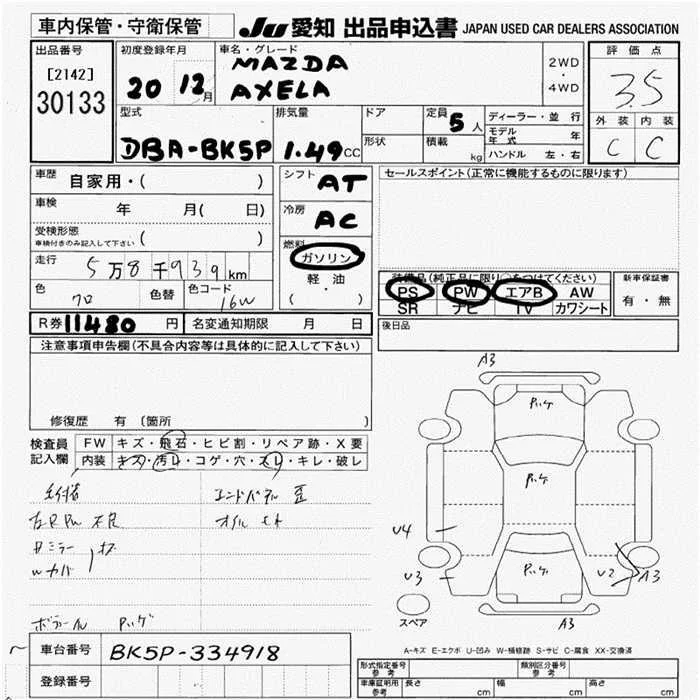 車内保管・守衛保管 JU 愛知 出品申込書 JAPAN USED CAR DEALERS ASSOCIATION
出品番号 初度登録年月 車名・グレード 評価点
[2142] 20 12月 MAZDA 2WD・4WD 3.5
30133 AXELA
型式 排気量 ドア 定員 5人 ディーラー・並行 外装 内装
DBA-BK5P 1.49CC 形状 積載 kg モデル年式 年 C C
ハンドル 左・右
車歴 自家用・( ) シフト AT セールスポイント(正常に機能するものに限ります)
車検 年 月( 日) 冷房 AC
受検形態 車検付きのみ記入して下さい ( )
燃料 ガソリン
走行 5万8千939km 軽・油
装備品(純正品に限り○をつけてください) 新車保証書
色 クロ 色替 色コード 16W (・)
PS PW エアB AW 有・無
SR ナビ TV カワシート
R券 11480円 名変通知期限 月 日 後日品
注意事項申告欄(不具合内容等は具体的に記入して下さい)
修復歴 有 〔箇所 〕
検査員記入欄 FW キズ・飛石・ヒビ割・リペア跡・X要
内装 キズ・汚レ・コゲ・穴・スレ・キレ・破レ
エンドパネル
左RPW 不良 オイル
ミラー
Wカバー
A3
U4
U3 U2 A3
スペア A3
A-キズ E-エクボ U-凹み W-補修跡 S-サビ C-腐食 XX-交換済
車台番号 BK5P-334918
登録番号
形式指定番号 参考 類別区分番号 参考
車庫証明用 参考 長さ cm 幅 cm 高さ cm